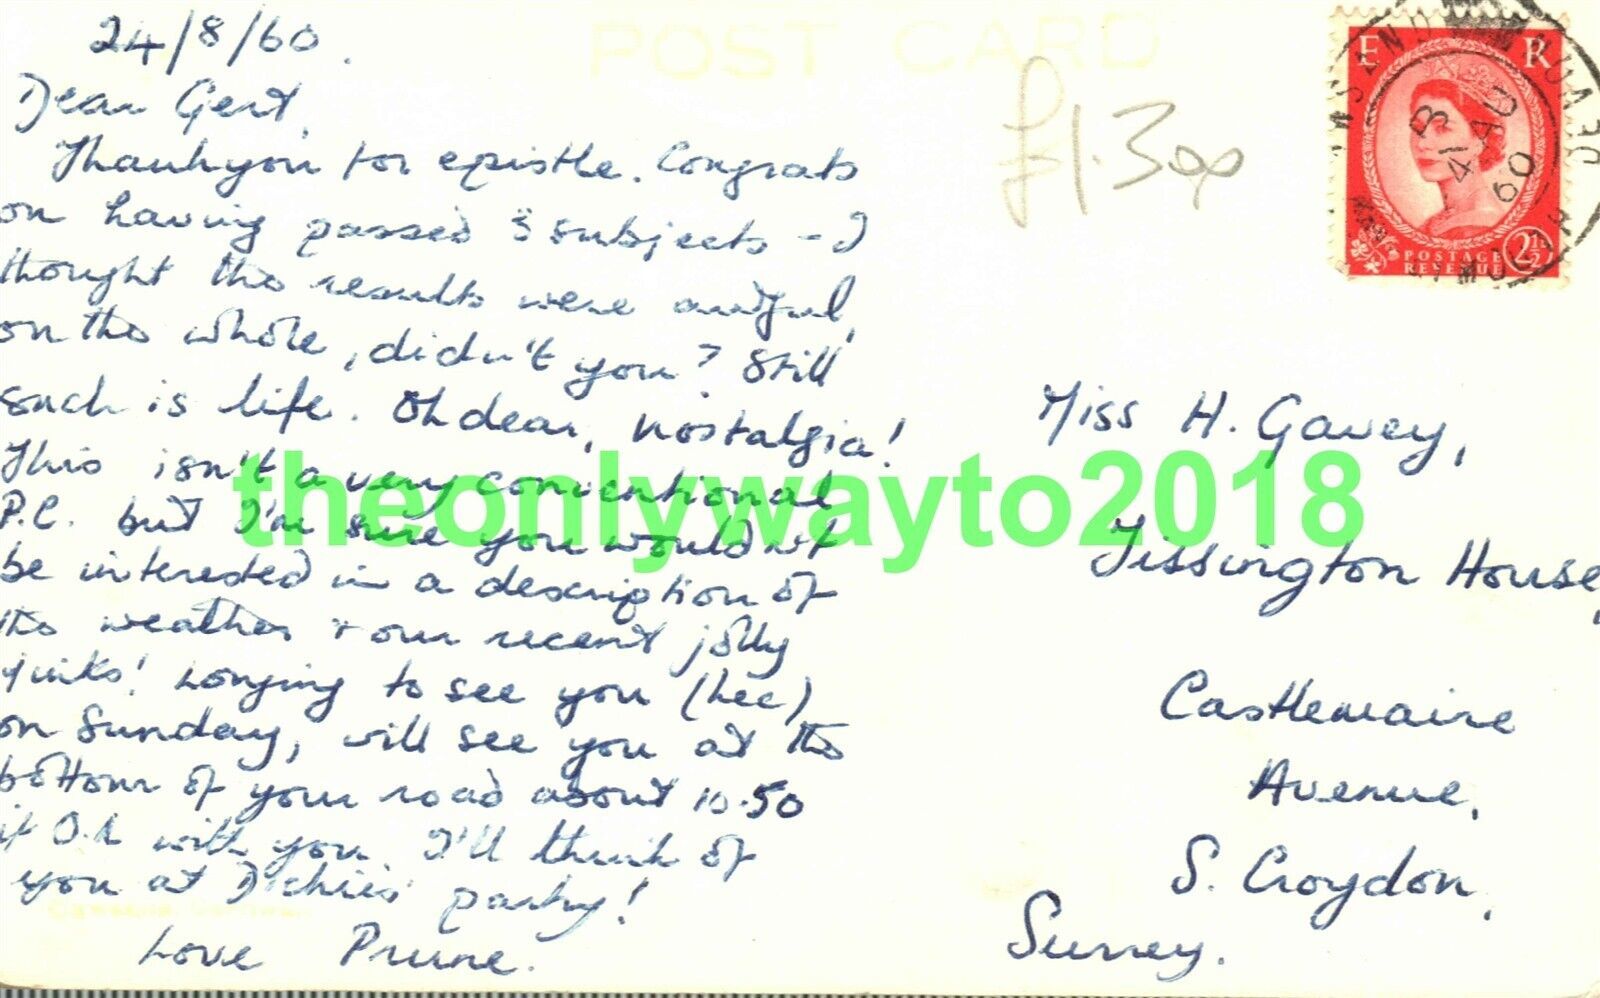 POST CARD
24/8/60.
Dear Gert,
Thankyou for epistle. Congrats
on having passed 3 subjects - I
thought the results were awful,
on the whole, didn't you? Still
such is life. Oh dear, nostalgia!
This isn't a very conventional
P.C. but I'm sure you wouldn't
be interested in a description of
the weather & our recent jolly
jinks! Longing to see you (hee)
on Sunday, will see you at the
bottom of your road about 10.50
if O.K with you. I'll think of
you at Dickies' party!
Love Prune.
£1.30p
E R
POSTAGE
REVENUE
2½
AU
60
Miss H. Gavey,
Tissington House,
Castlemaine
Avenue,
S. Croydon,
Surrey.
theonlywayto2018